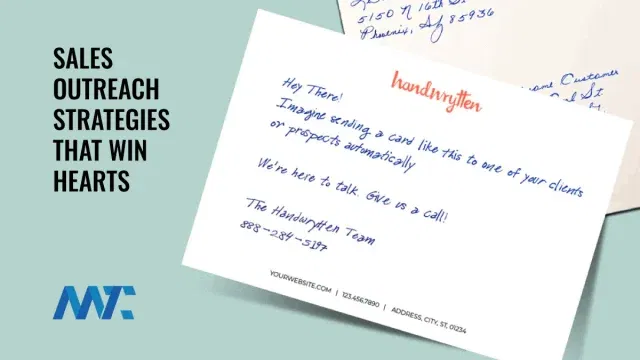 SALES
OUTREACH
STRATEGIES
THAT WIN
HEARTS
MTC
5150 N 16th St
Phoenix, AZ 85936
Customer
St
handwrytten
Hey There!
Imagine sending a card like this to one of your clients
or prospects automatically
We're here to talk. Give us a call!
The Handwrytten Team
888-284-5197
YOURWEBSITE.COM | 123.456.7890 | ADDRESS, CITY, ST, 01234